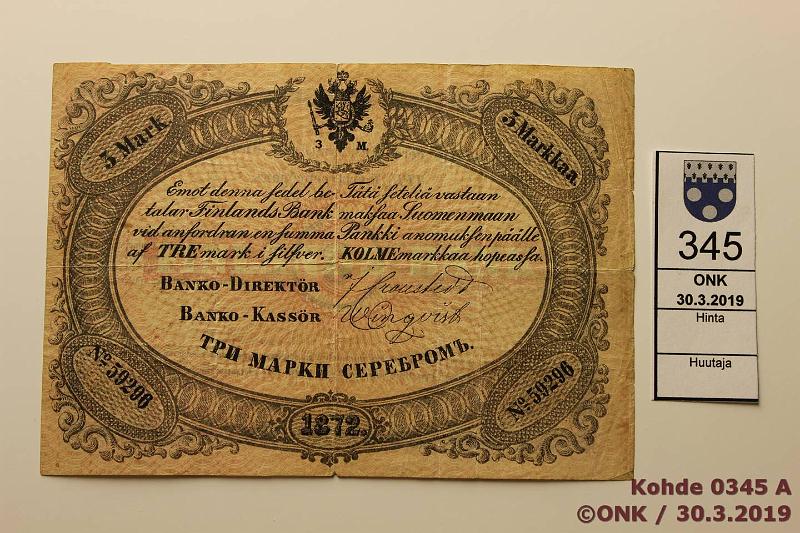 3 Mark
3 Markkaa
3 M.
Emot denna sedel be-
talar Finlands Bank
vid anfordran en summa
af TRE mark i silfver.
Tätä seteliä vastaan
maksaa Suomenmaan
Pankki anomuksen päälle
KOLME markkaa hopeassa.
BANKO-DIREKTÖR
BANKO-KASSÖR
ТРИ МАРКИ СЕРЕБРОМЪ.
No. 59296
No. 59296
1872.
345
ONK
30.3.2019
Hinta
Huutaja
Kohde 0345 A
©ONK / 30.3.2019